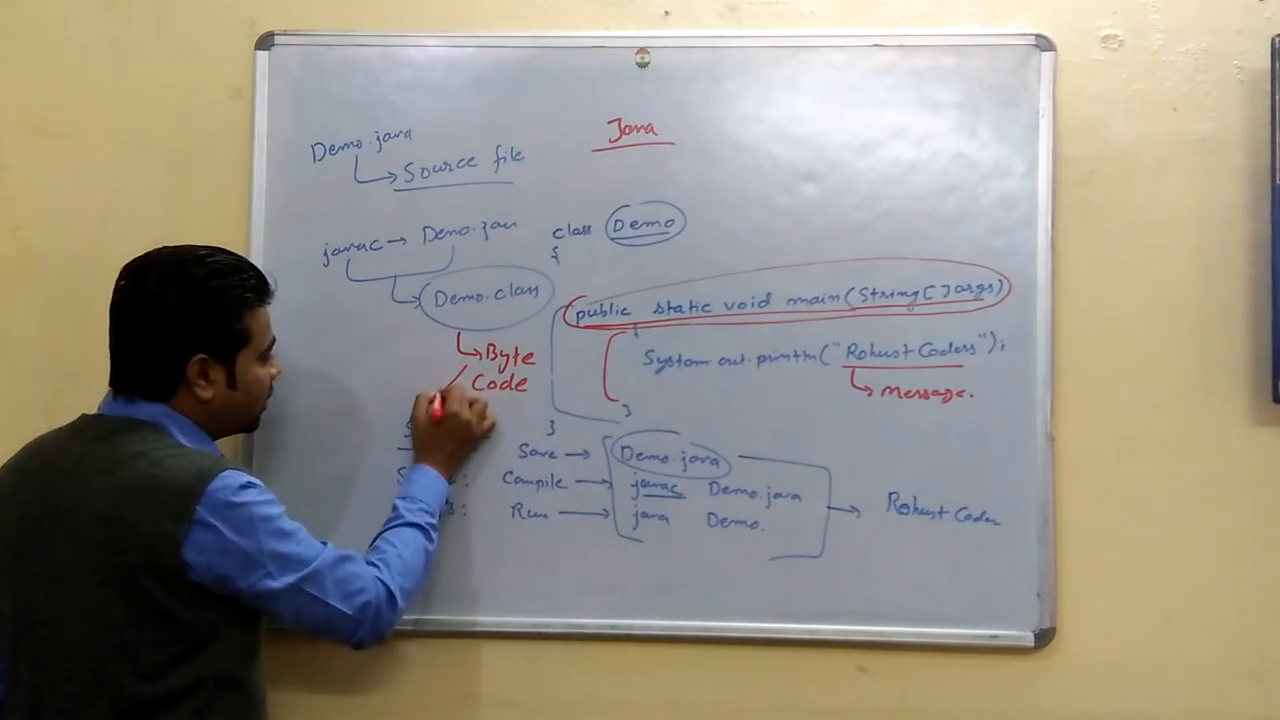 Java
Demo.java
Source file
javac → Demo.jav
Demo.class
Byte
Code
class Demo
{
public static void main(String[]args)
{
System.out.println("Robust Coders");
message.
}
}
Save → Demo.java
Compile → javac Demo.java
Run → java Demo.
Robust Coder